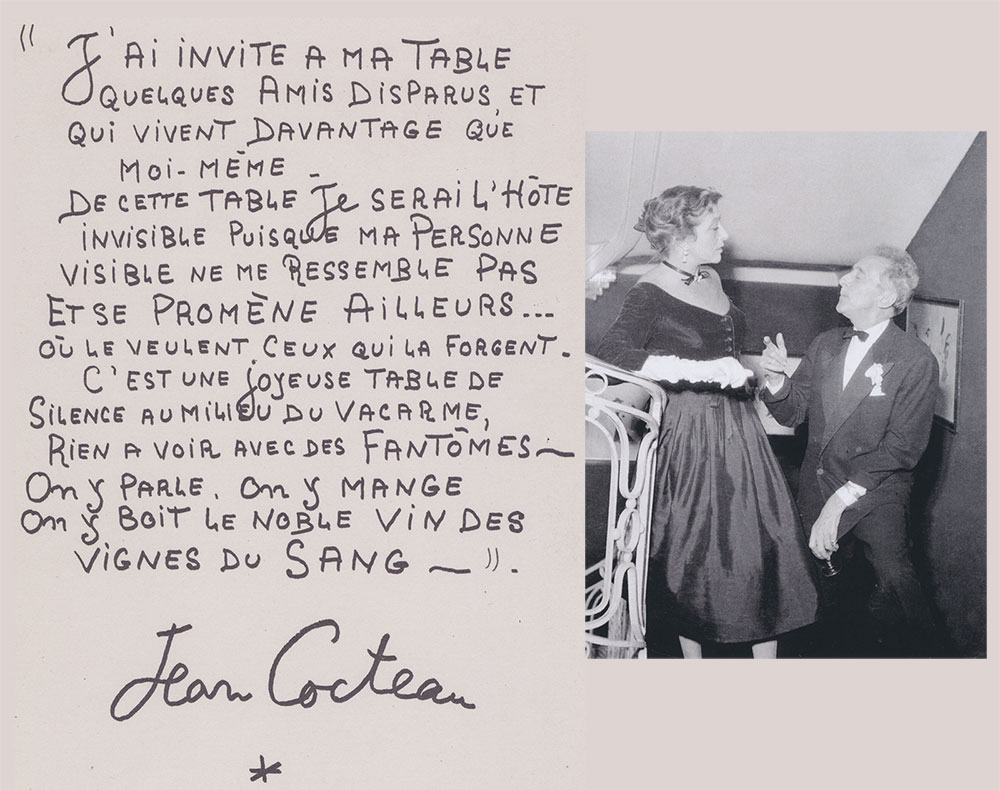 « J'AI INVITE A MA TABLE
QUELQUES AMIS DISPARUS, ET
QUI VIVENT DAVANTAGE QUE
MOI-MÊME -
DE CETTE TABLE Je SERAI L'HÔTE
INVISIBLE PUISQUE MA PERSONNE
VISIBLE NE ME RESSEMBLE PAS
ET SE PROMÈNE AILLEURS...
OÙ LE VEULENT CEUX QUI LA FORGENT.
C'EST UNE JOYEUSE TABLE DE
SILENCE AU MILIEU DU VACARME,
RIEN A VOIR AVEC DES FANTÔMES —
On y PARLE. On y MANGE
On y BOIT LE NOBLE VIN DES
VIGNES DU SANG — ».
Jean Cocteau
*